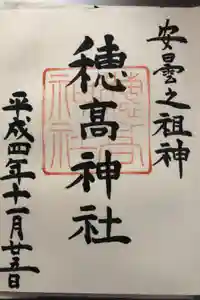 安曇之祖神
穂髙神社
平成四年十一月廿五日